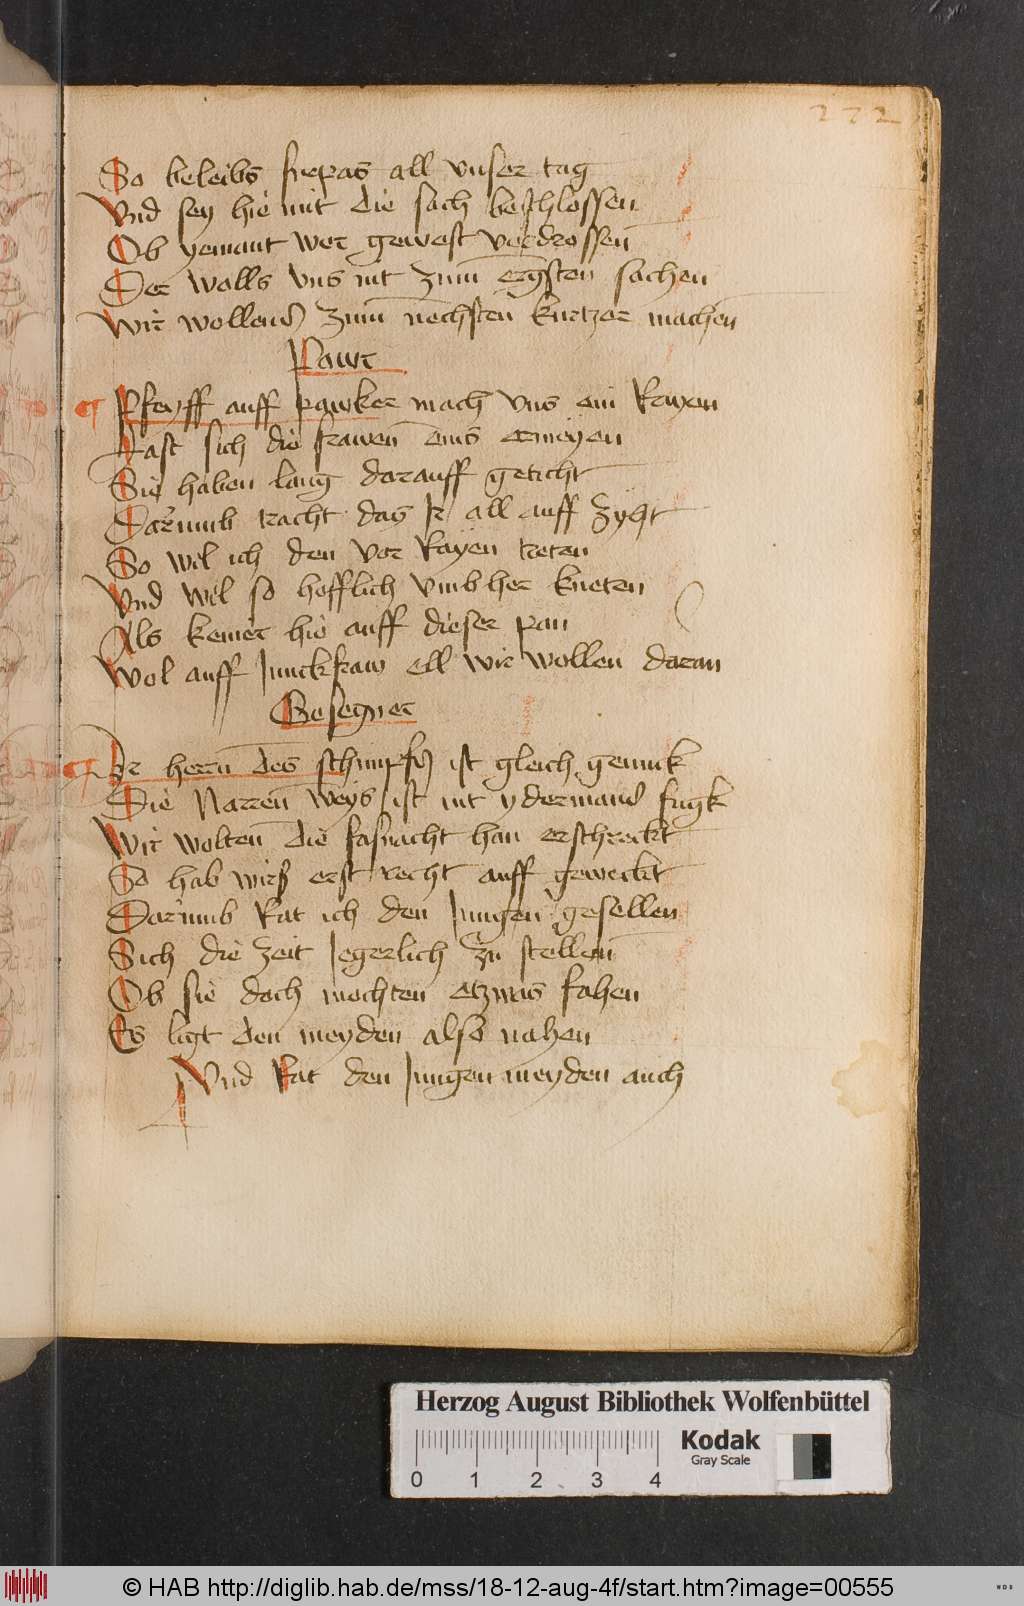 272
So beleibs siepas all vnser tag
Vnd sey hie mit die sach beschlossen
Ob yemant wer gewest verdrossen
Der wolls vns nit zum ergsten sachen
Wir wollend zum nechsten kurtzer machen
Pawr
Pfeyff auff pawker mach vns ein Rayen
Last sich die frawen eins ermeyen
Sie haben lang darauff geticht
Darumb tracht das Ir all auff zycht
So wil ich den vor Rayen treten
Vnd wil so hofflich vmbher kneten
Als keiner hie auff dieser pan
Wol auff Junckfraw Ell wir wollen daran
Gesegner
Ir herrn des schimpfs ist gleich genunk
Die Narren weys ist nit yderman fugk
Wir wolten die fasnacht han erschreckt
So hab wirs erst recht auff geweckt
Darumb Rat ich den Jungen gesellen
Sich die zeit Jegerlich zu stellen
Ob sie doch mochten etzwas fahen
Es ligt den meyden also nahen
Vnd Rat den Jungen meyden auch
Herzog August Bibliothek Wolfenbüttel
Kodak
Gray Scale
0 1 2 3 4
© HAB http://diglib.hab.de/mss/18-12-aug-4f/start.htm?image=00555